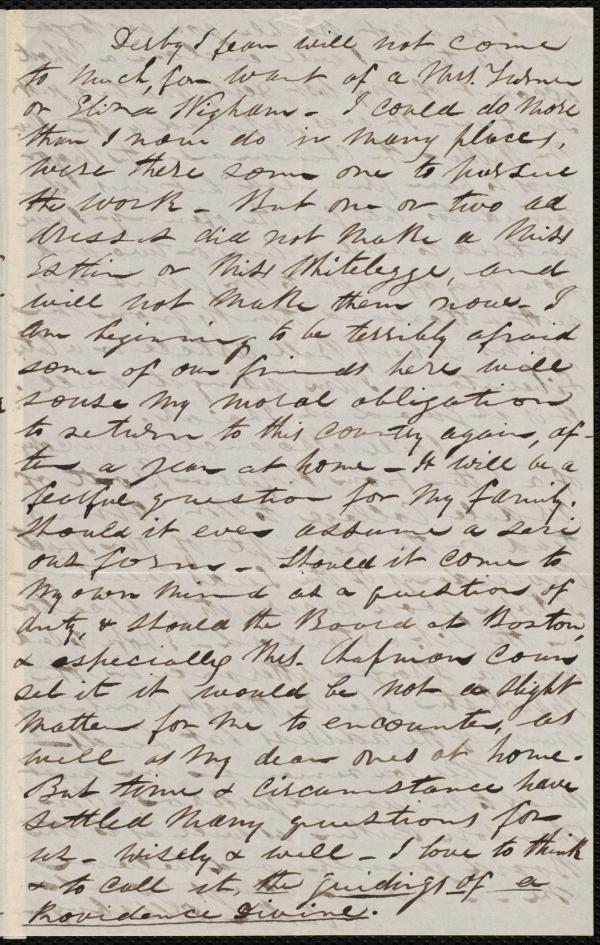 Derby I fear will not come
to much, for want of a Mrs. Turner
or Eliza Wigham - I could do more
than I now do in many places,
were there some one to pursue
the work - But one or two ad
dresses did not make a Miss
Estlin or Miss Whitelegge, and
will not make them now - I
am beginning to be terribly afraid
some of our friends here will
rouse my moral obligation
to return to this country again, af-
ter a year at home - It will be a
fearful question for my family.
Should it ever assume a seri
ous form - Should it come to
my own mind as a question of
duty, & should the Board at Boston,
& especially Mrs. Chapman coun
sel it it would be not a slight
matter for me to encounter, as
well as my dear ones at home.
But time & circumstance have
settled many questions for
us - wisely & well - I love to think
& to call it, the guidings of a
Providence Divine.